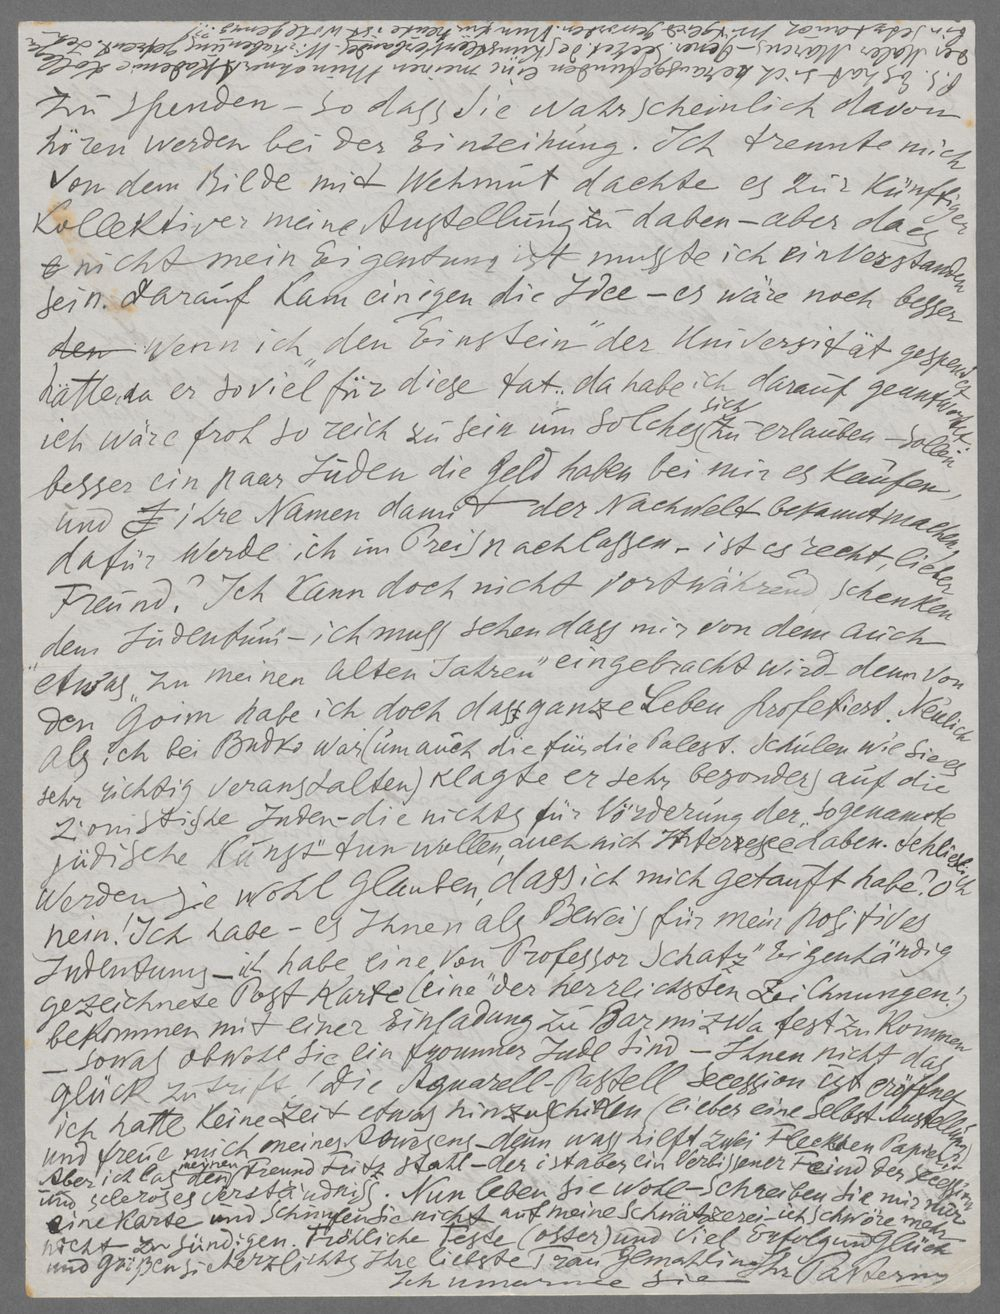 zu spenden – so dass Sie wahrscheinlich davon
hören werden bei der Einreihung. Ich trennte mich
von dem Bilde mit Wehmut dachte es zur künftiger
Kollektiver meine Austellung zu haben – aber da es
nicht mein Eigentum ist musste ich einverstanden
sein. Darauf kam einigen die Idee – es wäre noch besser
den wenn ich „den Einstein" der Universität gespendet
hätte, da er soviel für diese tat.. da habe ich darauf geantwortet:
ich wäre froh so reich zu sein um solches sich zu erlauben – sollen
besser ein paar Juden die Geld haben bei mir es kaufen,
und ihre Namen damit der Nachwelt bekannt machen,
dafür werde ich im Preis nachlassen – ist es recht, lieber
Freund? Ich kann doch nicht vortwährend schenken
dem Judentum – ich muss sehen dass mir von dem auch
etwas „zu meinen alten Jahren" eingebracht wird – denn von
den Goim habe ich doch das ganze Leben profetiert. Neulich
als ich bei Budko war (um auch die für die Palest. Schulen wie Sie es
sehr richtig veranstalten) klagte er sehr besonders auf die
Zionistishe Juden – die nichts für Vörderung der „sogenamte
jüdishe Kunst" tun wollen, auch nich Interesse haben. Schlieslich
werden Sie wohl glauben, dass ich mich getauft habe? O
nein! Ich habe – es Ihnen als Beweis für mein positives
Judentums – ich habe eine von „Professor Schatz" Eigenhändig
gezeichnete Post Karte (eine der herrlichsten Zeichnungen!)
bekommen mit einer Einladung zu Barmizwa fest zu kommen
– sowas obwohl Sie ein frommer Jude sind – Ihnen nicht das
Glück zutrift! Die Aquarell-Pastell Secession ist eröffnet
ich hatte keine Zeit etwas hinzuschiken (lieber eine Selbst Austellung)
und freue mich meines Abwesens – denn was hilft zwei Fleckhen Papier?
Aber ich las den meinen Freund Fritz Stahl – der ist aber ein verbissener Feind der Secession
und scleroses verständniss. Nun leben Sie wohl – schreiben Sie mir nur
eine Karte und schimpfen Sie nicht auf meine Schwätzerei – ich schwöre mehr
nicht zu sündigen. Fröhliche Feste (oster) und viel Erfolg und Glück
und grüßen sie herzlichts Ihre liebste Frau Gemahlin Ihr Pasternak
Ich umarme Sie
P.S. Es hat sich herausgefunden eine meinen Münchner Akademie Kolle
der Maler Marcus – Gener. secret des Künstlerverbandes